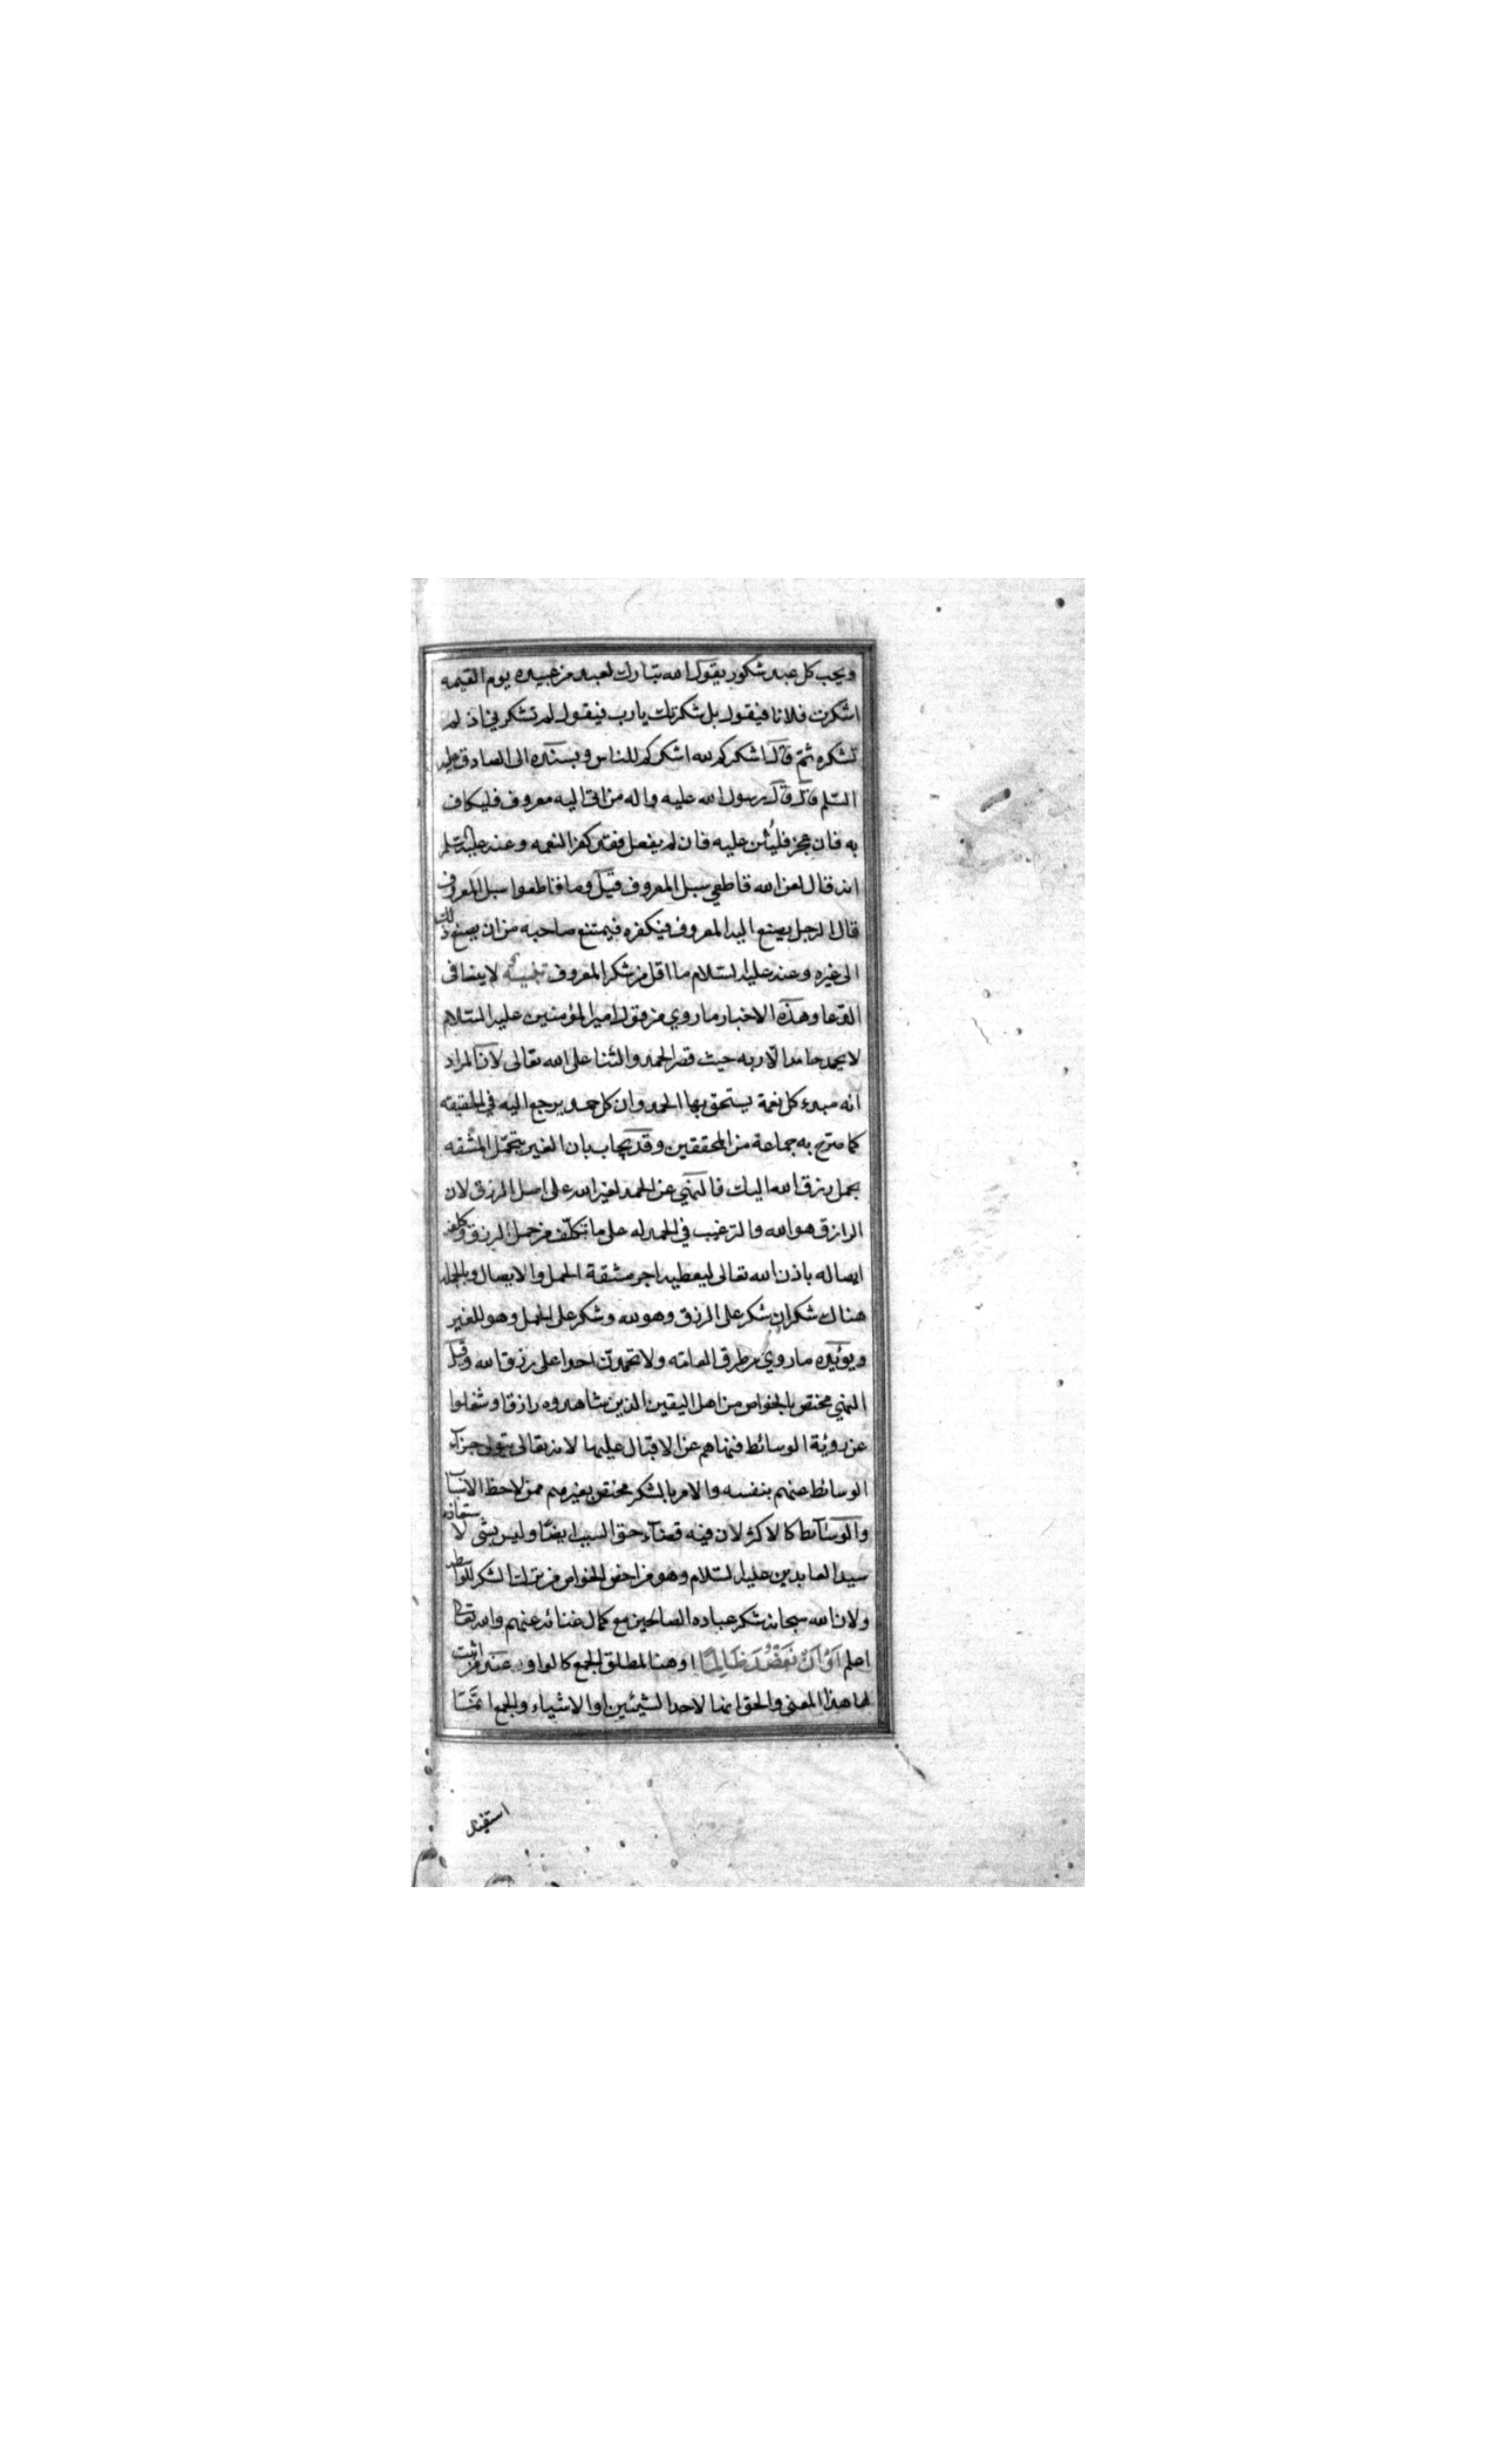 ويحب كل عبد شكور يقول الله تبارك لعبد من عبيده يوم القيمه
اشكرت فلانا فيقول بل شكرتك يا رب فيقول لم تشكرني اذ لم
تشكره ثم قال اشكركم لله اشكركم للناس وبسنده الى الصادق عليه
السلم قال قال رسول الله عليه واله من اتى اليه معروف فليكاف
به فان عجز فليُثن عليه فان لم يفعل فقد كفر النعمه وعنه عليه السلم
انه قال لعن الله قاطعي سبل المعروف قيل وما قاطعوا سبل المعروف
قال الرجل يصنع اليه المعروف فيكفره فيمتنع صاحبه من ان يصنع ذلك
الى غيره وعنه عليه السلام ما اقل من شكر المعروف لا ينافى
الدعا وهذه الاخبار ما روي من قول امير المؤمنين عليه السلام
لا يحمد حامد الّا ربه حيث قصر الحمد والثنا على الله تعالى لانّ المراد
انه مبدء كل نعمة يستحق بها الحمد وان كل حمد يرجع اليه في الحقيقه
كما صرّح به جماعة من المحققين وقد يجاب بان الغير يتحمّل المشقه
بحمل رزق الله اليك فالنهي عن الحمد لغير الله على اصل الرزق لان
الرازق هو الله والترغيب في الحمد له على ما تكلّف من حمل الرزق وكلفة
ايصاله باذن الله تعالى ليعطيه اجر مشقة الحمل والايصال وبالجمله
هناك شكران شكر على الرزق وهو لله وشكر على الحمل وهو للغير
ويؤيّده ما روي من طرق العامّه ولا تحمدنّ احدا على رزق الله وقيل
النهي مختص بالخواص من اهل اليقين الذين شاهدوه رازقا وشغلوا
عن رؤية الوسائط فنهاهم عن الاقبال عليها لانه تعالى يتولى جزاء
الوسائط عنهم بنفسه والامر بالشكر مختص بغيرهم ممن لاحظ الاسباب
والوسائط كالاكثر لان فيه قضاء حق السبب ايضًا وليس بشى لاستعاذة
سيد العابدين عليه السلام وهو من اخص الخواص من ترك الشكر للواسطه
ولان الله سبحانه شكر عباده الصالحين مع كمال غنائه عنهم والله تعالى
اعلم اَوْ اَنْ نَعْضُدَ ظَالِمًا او هنا لمطلق الجمع كالواو عند من اثبت
لها هذا المعنى والحق انها لاحد الشيئين او الاشياء والجمع انمّا
استفيد